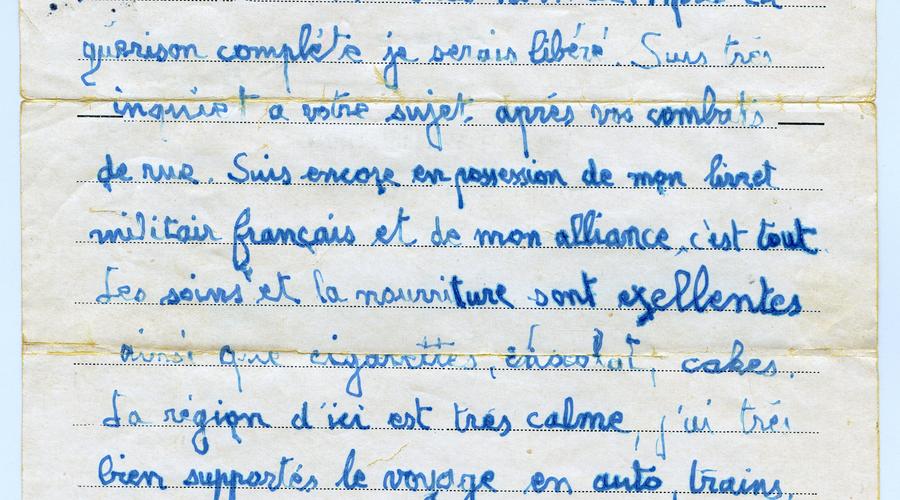 guérison complète je serais libéré. Suis très
inquiet a votre sujet, aprés vos combats
de rue. Suis encore en possession de mon livret
militair français et de mon alliance, c'est tout
Les soins et la nourriture sont exellentes
ainsi que cigarettes, chocolat, cakes.
La région d'ici est trés calme, j'ai trés
bien supportés le voyage en auto, trains,